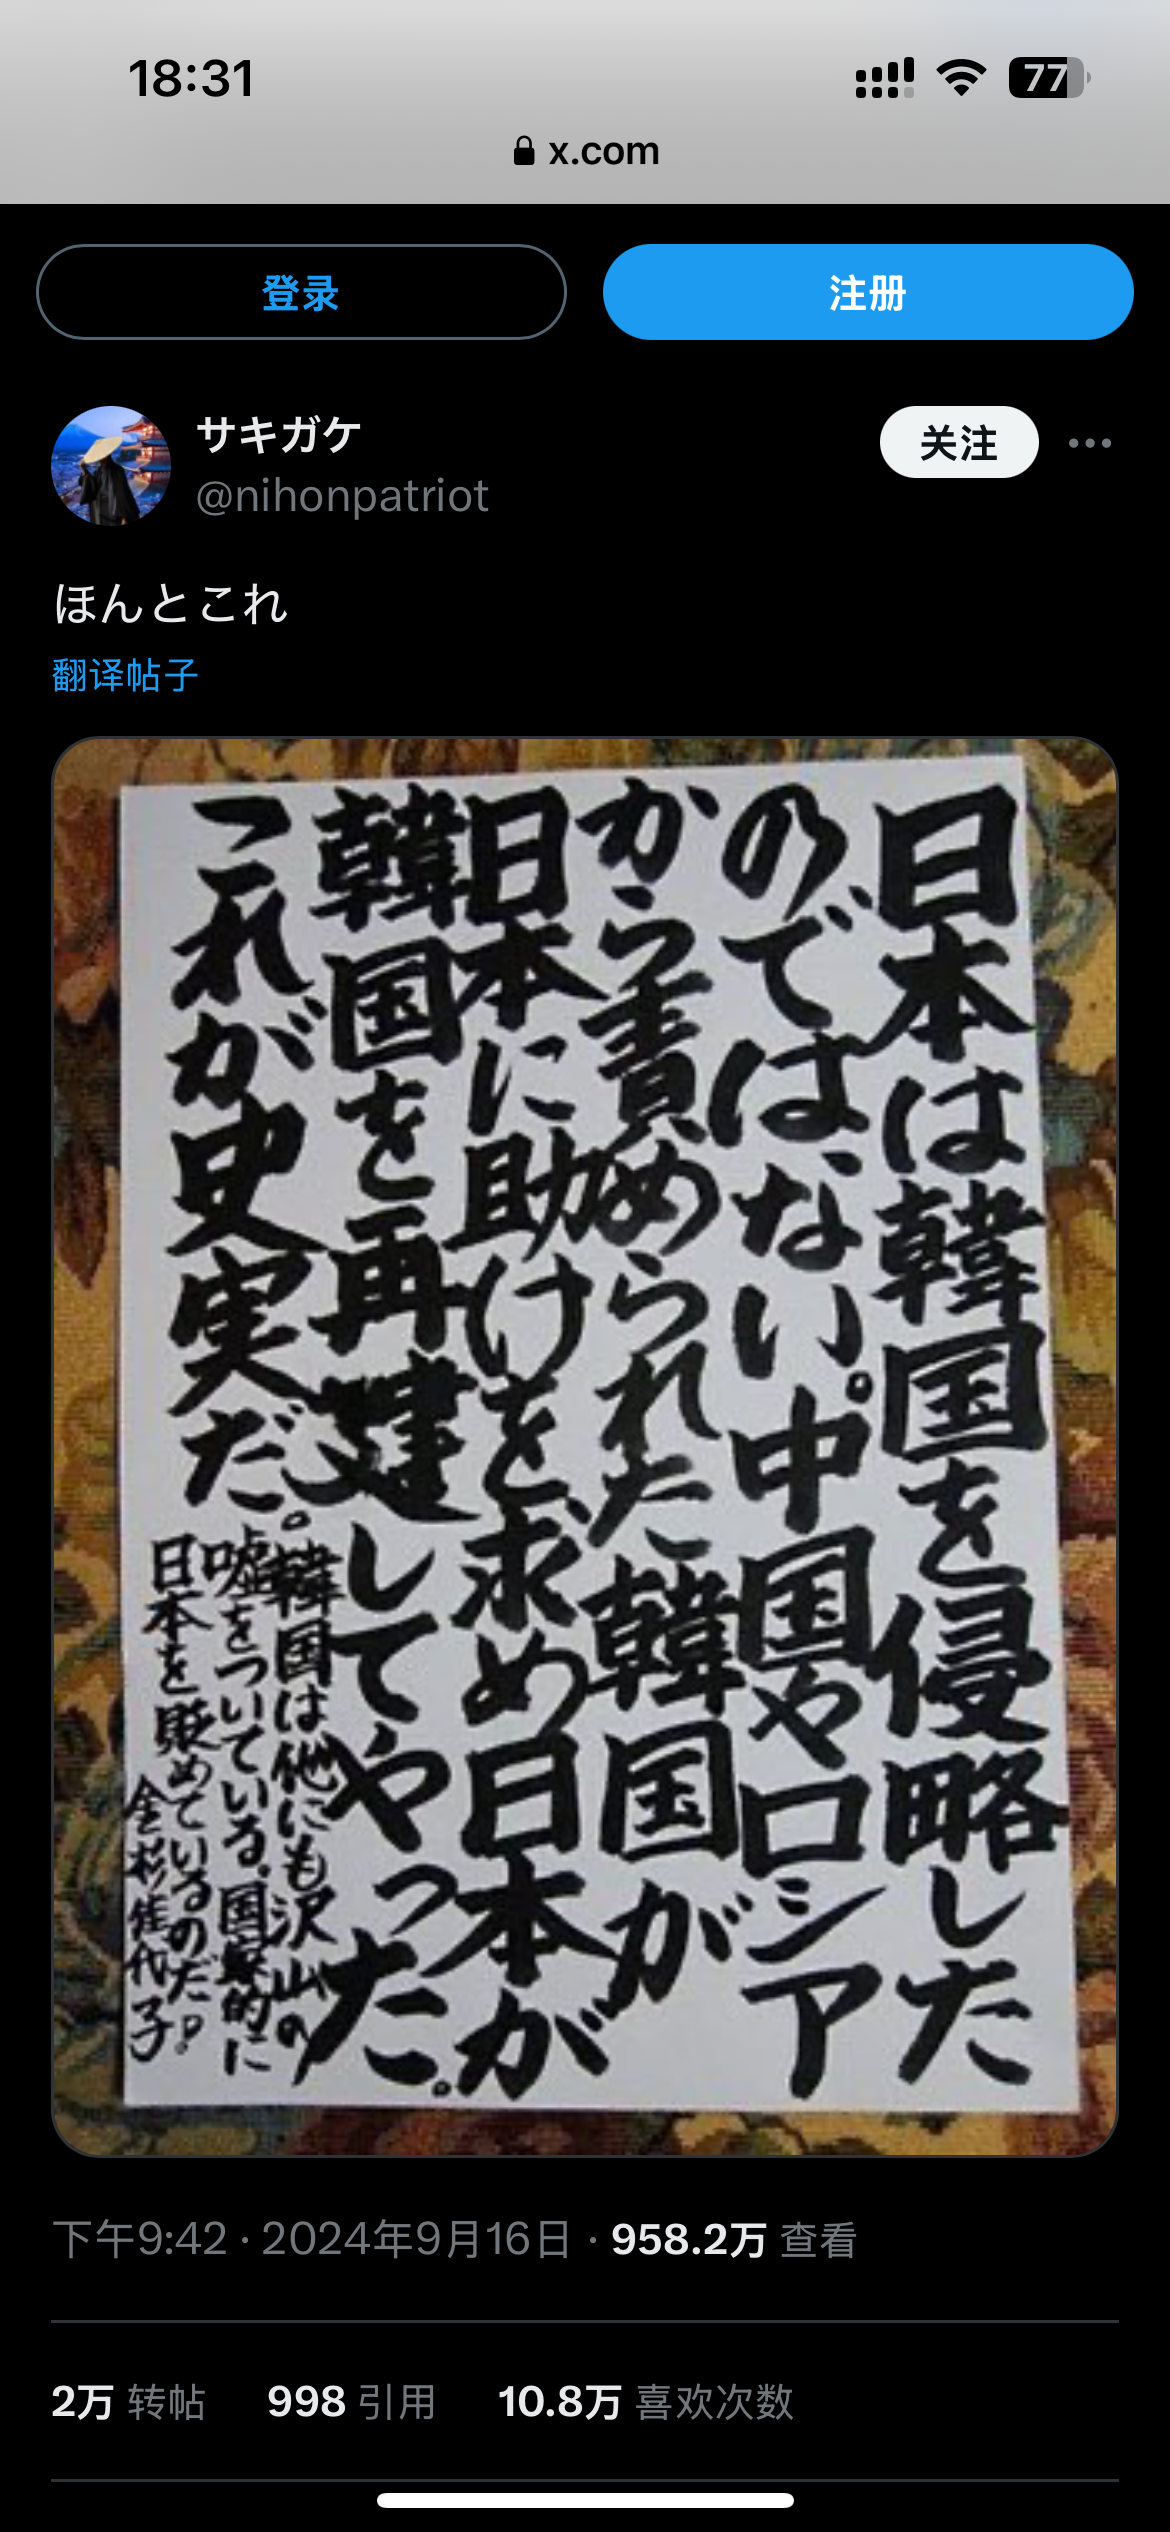 18:31
77
x.com
登录
注册
サキガケ
@nihonpatriot
关注
ほんとこれ
翻译帖子
日本は韓国を侵略した
のではない。中国やロシア
から責められた韓国が
日本に助けを求め日本が
韓国を再建してやった。
これが史実だ。
韓国は他にも沢山の
嘘をついている。国家的に
日本を貶めているのだ。
金杉佳代子
下午9:42 · 2024年9月16日 · 958.2万 查看
2万 转帖 998 引用 10.8万 喜欢次数